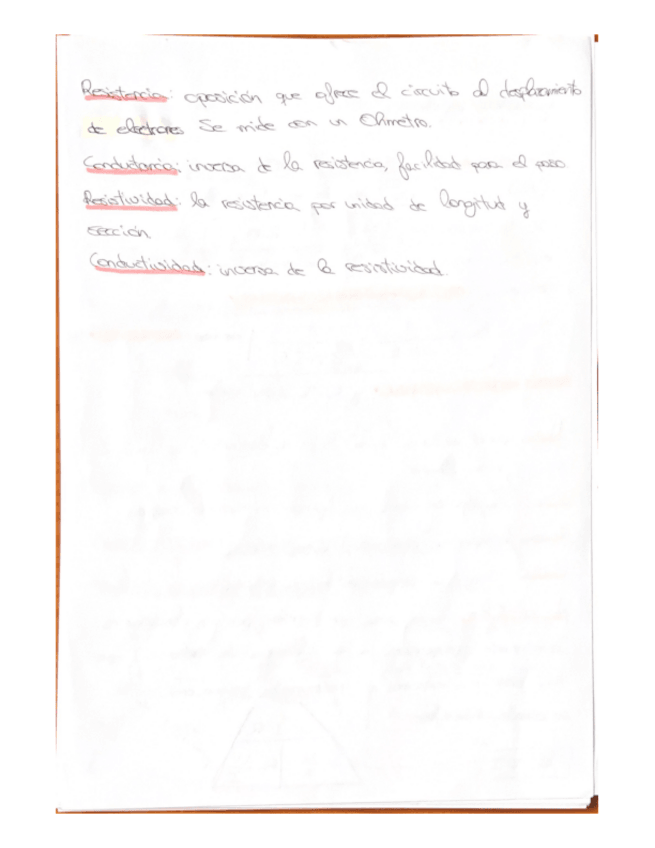 Resistencia: oposición que ofrece el circuito al desplazamiento
de electrones Se mide con un Ohmetro.
Conductancia: inversa de la resistencia, facilidad para el paso.
Resistividad: la resistencia por unidad de longitud y
sección.
Conductividad: inversa de la resistividad.